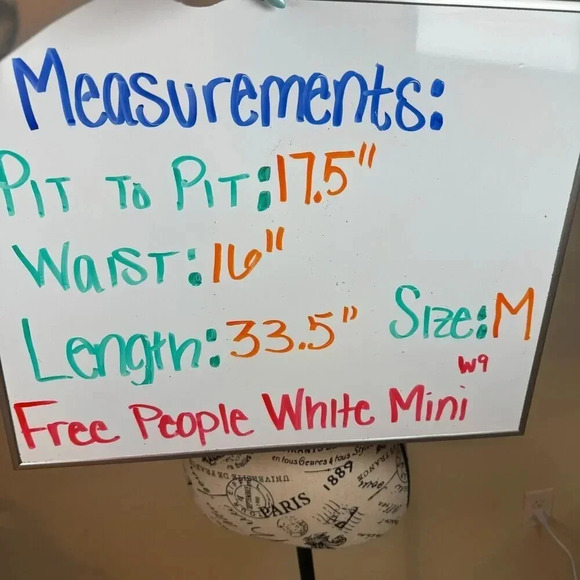 Measurements:
Pit to Pit: 17.5"
Waist: 16"
Length: 33.5"
Size: M
W9
Free People White Mini
en tous Genres & tous
1889
PARIS